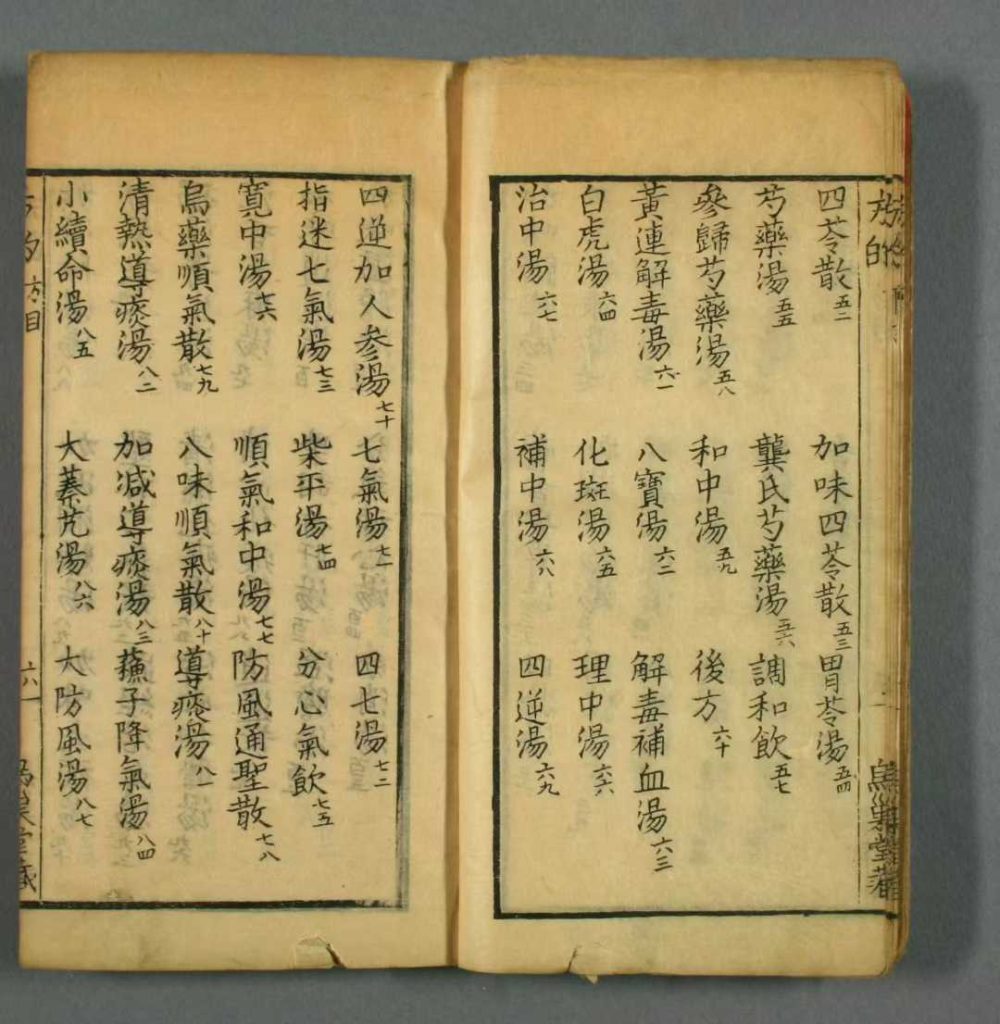 四苓散五二 加味四苓散五三 胃苓湯五四
芍藥湯五五 龔氏芍藥湯五六 調和飲五七
參歸芍藥湯五八 和中湯五九 後方六十
黃連解毒湯六一 八寶湯六二 解毒補血湯六三
白虎湯六四 化斑湯六五 理中湯六六
治中湯六七 補中湯六八 四逆湯六九
四逆加人參湯七十 七氣湯七一 四七湯七二
指迷七氣湯七三 柴平湯七四 分心氣飲七五
寬中湯七六 順氣和中湯七七 防風通聖散七八
烏藥順氣散七九 八味順氣散八十 導痰湯八一
清熱導痰湯八二 加減導痰湯八三 蘓子降氣湯八四
小續命湯八五 大蓁艽湯八六 大防風湯八七
方目